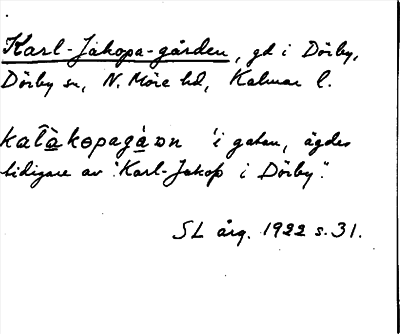 Karl-Jakopa-gården, gd i Dörby,
Dörby sn, N. Möre hd, Kalmar l.
kal̂àkɵpagáɒn 'i gatan, ägdes
tidigare av "Karl-Jakop i Dörby".
SL årg. 1922 s. 31.